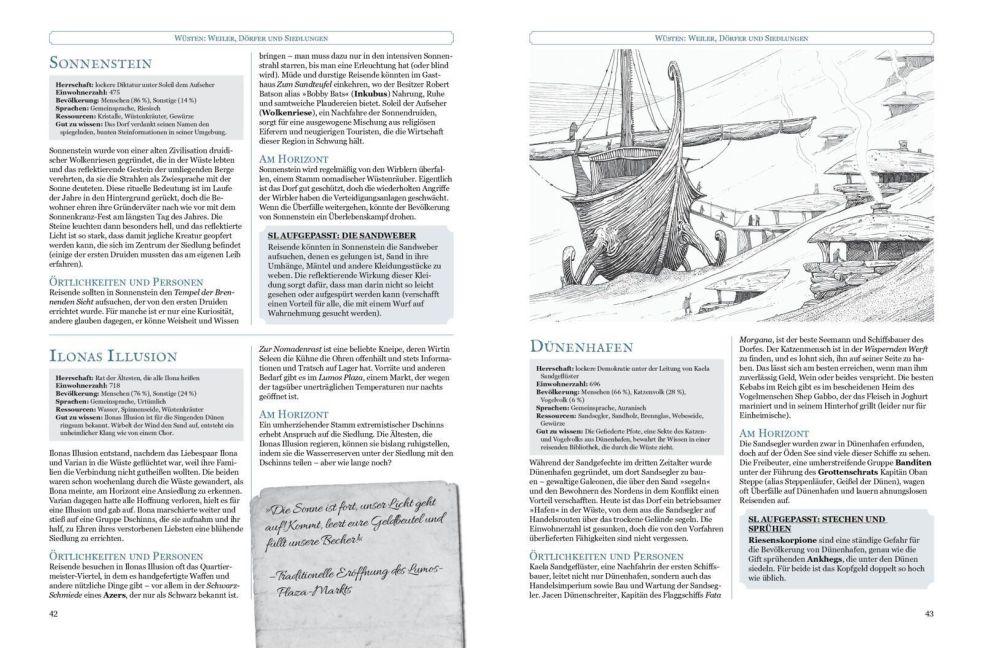 Wüsten: Weiler, Dörfer und Siedlungen
Sonnenstein
Herrschaft: lockere Diktatur unter Soleil dem Aufseher
Einwohnerzahl: 475
Bevölkerung: Menschen (86 %), Sonstige (14 %)
Sprachen: Gemeinsprache, Riesisch
Ressourcen: Kristalle, Wüstenkräuter, Gewürze
Gut zu wissen: Das Dorf verdankt seinen Namen den
spiegelnden, bunten Steinformationen in seiner Umgebung.
Sonnenstein wurde von einer alten Zivilisation druidi-
scher Wolkenriesen gegründet, die in der Wüste lebten
und das reflektierende Gestein der umliegenden Berge
verehrten, da sie die Strahlen als Zwiesprache mit der
Sonne deuteten. Diese rituelle Bedeutung ist im Laufe
der Jahre in den Hintergrund gerückt, doch die Be-
wohner ehren ihre Gründerväter nach wie vor mit dem
Sonnenkranz-Fest am längsten Tag des Jahres. Die
Steine leuchten dann besonders hell, und das reflektierte
Licht ist so stark, dass damit jegliche Kreatur geopfert
werden kann, die sich im Zentrum der Siedlung befindet
(einige der ersten Druiden mussten das am eigenen Leib
erfahren).
Örtlichkeiten und Personen
Reisende sollten in Sonnenstein den Tempel der Bren-
nenden Sicht aufsuchen, der von den ersten Druiden
errichtet wurde. Für manche ist er nur eine Kuriosität,
andere glauben dagegen, er könne Weisheit und Wissen
bringen – man muss dazu nur in den intensiven Sonnen-
strahl starren, bis man eine Erleuchtung hat (oder blind
wird). Müde und durstige Reisende könnten im Gast-
haus Zum Sandteufel einkehren, wo der Besitzer Robert
Batson alias »Bobby Bats« (Inkubus) Nahrung, Ruhe
und samtweiche Plaudereien bietet. Soleil der Aufseher
(Wolkenriese), ein Nachfahre der Sonnendruiden,
sorgt für eine ausgewogene Mischung aus religiösen
Eiferern und neugierigen Touristen, die die Wirtschaft
dieser Region in Schwung hält.
Am Horizont
Sonnenstein wird regelmäßig von den Wirblern überfal-
len, einem Stamm nomadischer Wüstenräuber. Eigentlich
ist das Dorf gut geschützt, doch die wiederholten Angriffe
der Wirbler haben die Verteidigungsanlagen geschwächt.
Wenn die Überfälle weitergehen, könnte der Bevölkerung
von Sonnenstein ein Überlebenskampf drohen.
SL aufgepasst: Die Sandweber
Reisende könnten in Sonnenstein die Sandweber
aufsuchen, denen es gelungen ist, Sand in ihre
Umhänge, Mäntel und andere Kleidungsstücke zu
weben. Die reflektierende Wirkung dieser Klei-
dung sorgt dafür, dass man darin nicht so leicht
gesehen oder aufgespürt werden kann (verschafft
einen Vorteil für alle, die mit einem Wurf auf
Wahrnehmung gesucht werden).
Ilonas Illusion
Herrschaft: Rat der Ältesten, die alle Ilona heißen
Einwohnerzahl: 718
Bevölkerung: Menschen (76 %), Sonstige (24 %)
Sprachen: Gemeinsprache, Urtümlich
Ressourcen: Wasser, Spinnenseide, Wüstenkräuter
Gut zu wissen: Ilonas Illusion ist für die Singenden Dünen
ringsum bekannt. Wirbelt der Wind den Sand auf, entsteht ein
unheimlicher Klang wie von einem Chor.
Ilonas Illusion entstand, nachdem das Liebespaar Ilona
und Varian in die Wüste geflüchtet war, weil ihre Fami-
lien die Verbindung nicht gutheißen wollten. Die beiden
waren schon wochenlang durch die Wüste gewandert, als
Ilona meinte, am Horizont eine Ansiedlung zu erkennen.
Varian dagegen hatte alle Hoffnung verloren, hielt es für
eine Illusion und gab auf. Ilona marschierte weiter und
stieß auf eine Gruppe Dschinns, die sie aufnahm und ihr
half, zu Ehren ihres verstorbenen Liebsten eine blühende
Siedlung zu errichten.
Örtlichkeiten und Personen
Reisende besuchen in Ilonas Illusion oft das Quartier-
meister-Viertel, in dem es handgefertigte Waffen und
andere nützliche Dinge gibt – vor allem in der Schwarz-
Schmiede eines Azers, der nur als Schwarz bekannt ist.
Zur Nomadenrast ist eine beliebte Kneipe, deren Wirtin
Seleen die Kühne die Ohren offenhält und stets Informa-
tionen und Tratsch auf Lager hat. Vorräte und anderen
Bedarf gibt es im Lumos Plaza, einem Markt, der wegen
der tagsüber unerträglichen Temperaturen nur nachts
geöffnet ist.
Am Horizont
Ein umherziehender Stamm extremistischer Dschinns
erhebt Anspruch auf die Siedlung. Die Ältesten, die
Ilonas Illusion regieren, können sie bislang ruhigstellen,
indem sie die Wasserreserven unter der Siedlung mit den
Dschinns teilen – aber wie lange noch?
»Die Sonne ist fort, unser Licht geht
auf! Kommt, leert eure Geldbeutel und
füllt unsere Becher!«
–Traditionelle Eröffnung des Lumos-
Plaza-Markts
42
Wüsten: Weiler, Dörfer und Siedlungen
Dünenhafen
Herrschaft: lockere Demokratie unter der Leitung von Kaela
Sandgeflüster
Einwohnerzahl: 696
Bevölkerung: Menschen (66 %), Katzenvolk (28 %),
Vogelvolk (6 %)
Sprachen: Gemeinsprache, Auranisch
Ressourcen: Sandsegler, Sandholz, Brennglas, Webeseide,
Gewürze
Gut zu wissen: Die Gefiederte Pfote, eine Sekte des Katzen-
und Vogelvolks aus Dünenhafen, bewahrt ihr Wissen in einer
reisenden Bibliothek, die durch die Wüste zieht.
Während der Sandgefechte im dritten Zeitalter wurde
Dünenhafen gegründet, um dort Sandsegler zu bau-
en – gewaltige Galeonen, die über den Sand »segeln«
und den Bewohnern des Nordens in dem Konflikt einen
Vorteil verschafften. Heute ist das Dorf ein betriebsamer
»Hafen« in der Wüste, von dem aus die Sandsegler auf
Handelsrouten über das trockene Gelände segeln. Die
Einwohnerzahl ist gesunken, doch die von den Vorfahren
überlieferten Fähigkeiten sind nicht vergessen.
Örtlichkeiten und Personen
Kaela Sandgeflüster, eine Nachfahrin der ersten Schiffs-
bauer, leitet nicht nur Dünenhafen, sondern auch das
Handelsimperium sowie Bau und Wartung der Sandseg-
ler. Jacen Dünenschreiter, Kapitän des Flaggschiffs Fata
Morgana, ist der beste Seemann und Schiffsbauer des
Dorfes. Der Katzenmensch ist in der Wispernden Werft
zu finden, und es lohnt sich, ihn auf seiner Seite zu ha-
ben. Das lässt sich am besten erreichen, wenn man ihm
zuverlässig Geld, Wein oder beides verspricht. Die besten
Kebabs im Reich gibt es im bescheidenen Heim des
Vogelmenschen Shep Gabbo, der das Fleisch in Joghurt
mariniert und in seinem Hinterhof grillt (leider nur für
Einheimische).
Am Horizont
Die Sandsegler wurden zwar in Dünenhafen erfunden,
doch auf der Öden See sind viele dieser Schiffe zu sehen.
Die Freibeuter, eine umherstreifende Gruppe Banditen
unter der Führung des Grottenschrats Kapitän Oban
Steppe (alias Steppenläufer, Geißel der Dünen), wagen
oft Überfälle auf Dünenhafen und lauern ahnungslosen
Reisenden auf.
SL aufgepasst: Stechen und
Sprühen
Riesenskorpione sind eine ständige Gefahr für
die Bevölkerung von Dünenhafen, genau wie die
Gift sprühenden Ankhegs, die unter den Dünen
siedeln. Für beide ist das Kopfgeld doppelt so hoch
wie üblich.
43